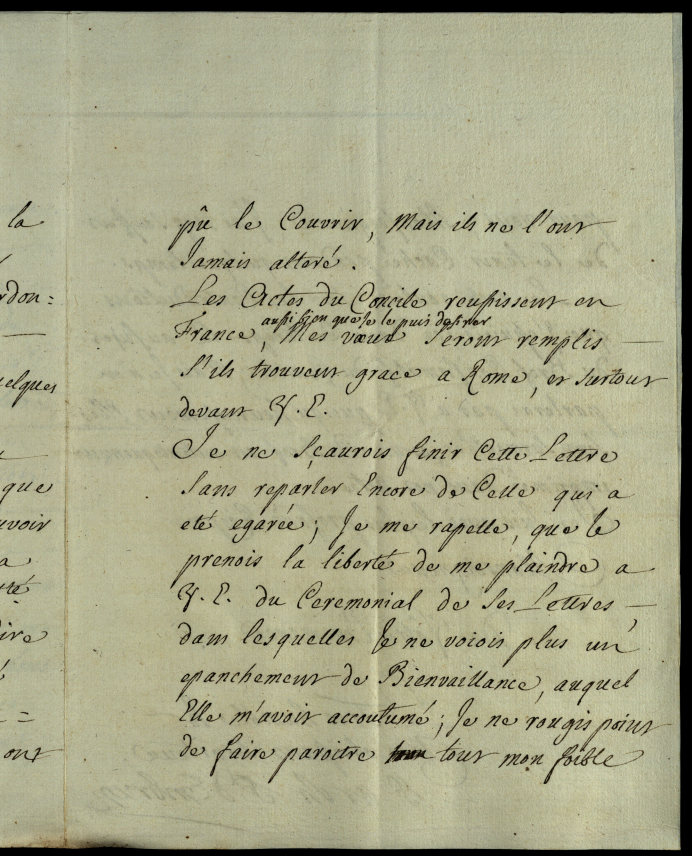 la
rdon=
uelques
que
uvoir
a
té
dire
é
=
ont
pû le Couvrir, Mais ils ne l'ont
Jamais alteré.
Les Actes du Concile reussissent en
aussi bien que Je le puis desirer
France, Mes vœux Seront remplis —
S'ils trouvent grace a Rome, et surtout
devant V. E.
Je ne Sçaurois finir Cette Lettre
Sans reparler Encore de Celle qui a
eté egarée; Je me rapelle, que Je
prenois la liberté de me plaindre a
V. E. du Ceremonial de Ses Lettres, —
dans lesquelles Je ne voiois plus un
epanchement de Bienvaillance, auquel
Elle m'avoit accoutumé; Je ne rougis point
de faire paroitre tout mon foible